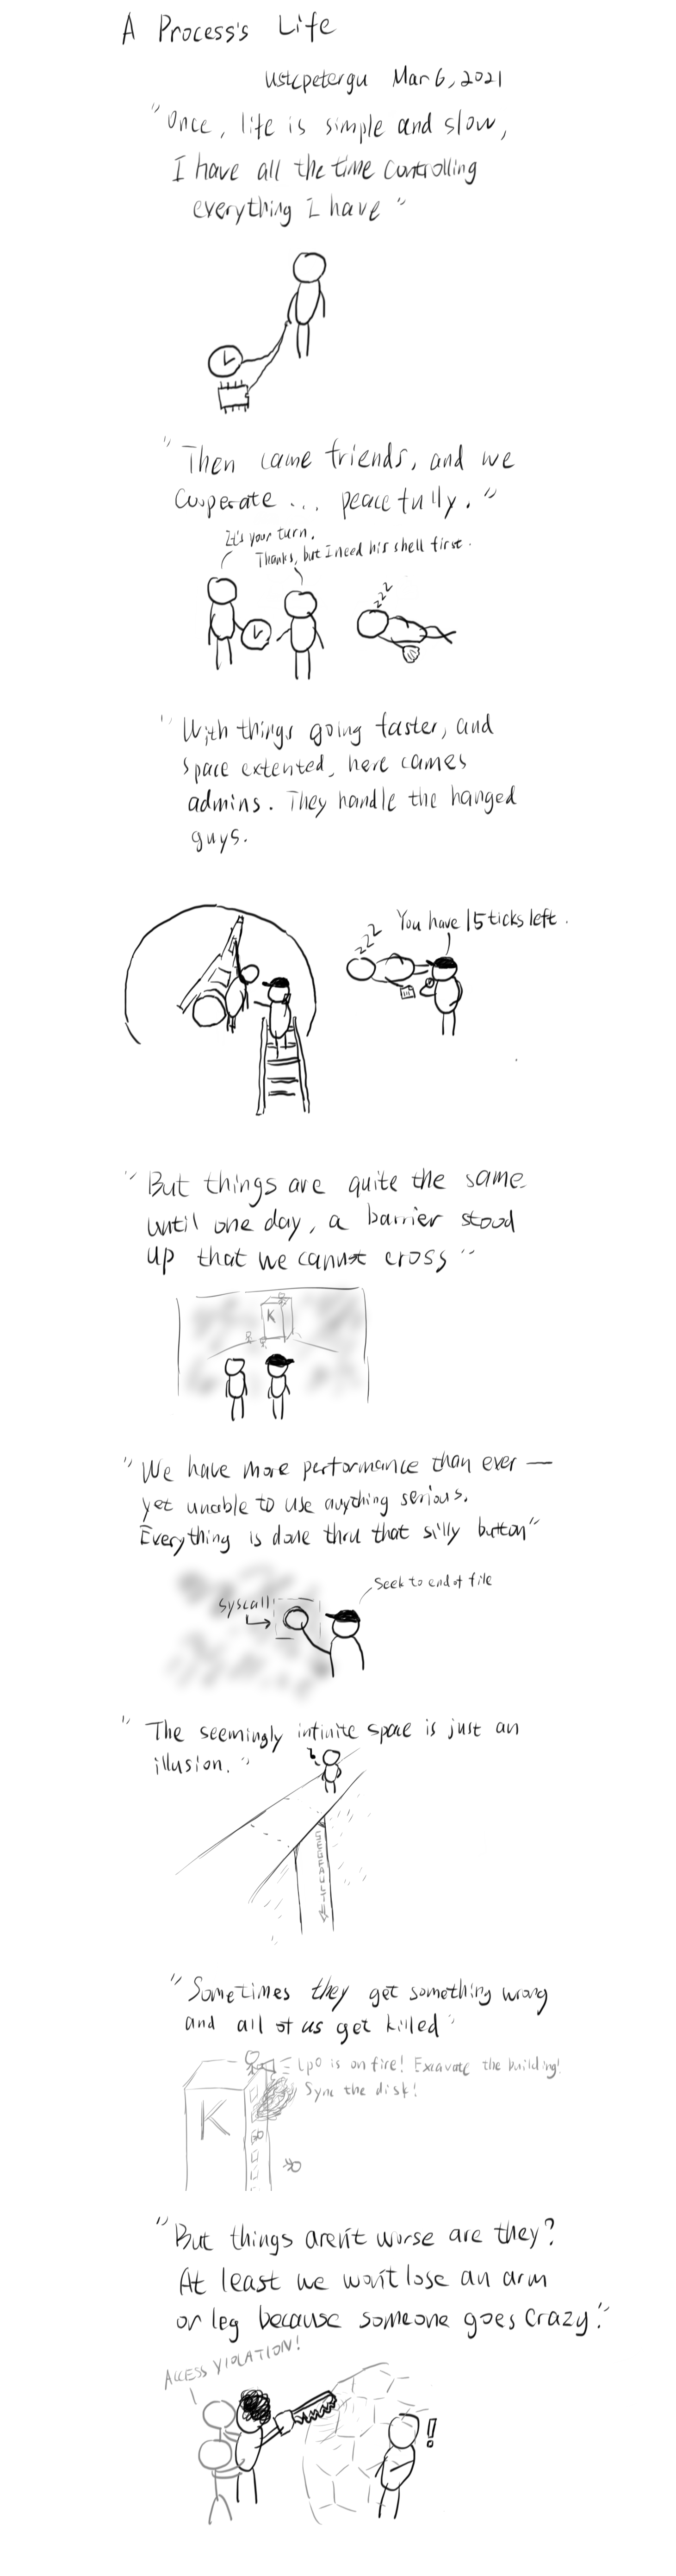 A Process's Life
ustcpetergu Mar 6, 2021
"Once, life is simple and slow,
I have all the time controlling
everything I have"
"Then came friends, and we
cooperate ... peacefully."
It's your turn.
Thanks, but I need his shell first.
zzz
"With things going faster, and
space extented, here cames
admins. They handle the hanged
guys.
zzz
You have 15 ticks left.
"But things are quite the same
until one day, a barrier stood
up that we cannot cross"
K
"We have more performance than ever —
yet unable to use anything serious.
Everything is done thru that silly button"
Seek to end of file
Syscall
"The seemingly infinite space is just an
illusion."
SEGFAULT
"Sometimes they get something wrong
and all of us get killed"
lp0 is on fire! Excavate the building!
Sync the disk!
K
"But things aren't worse are they?
At least we won't lose an arm
or leg because someone goes crazy."
ACCESS VIOLATION!
!